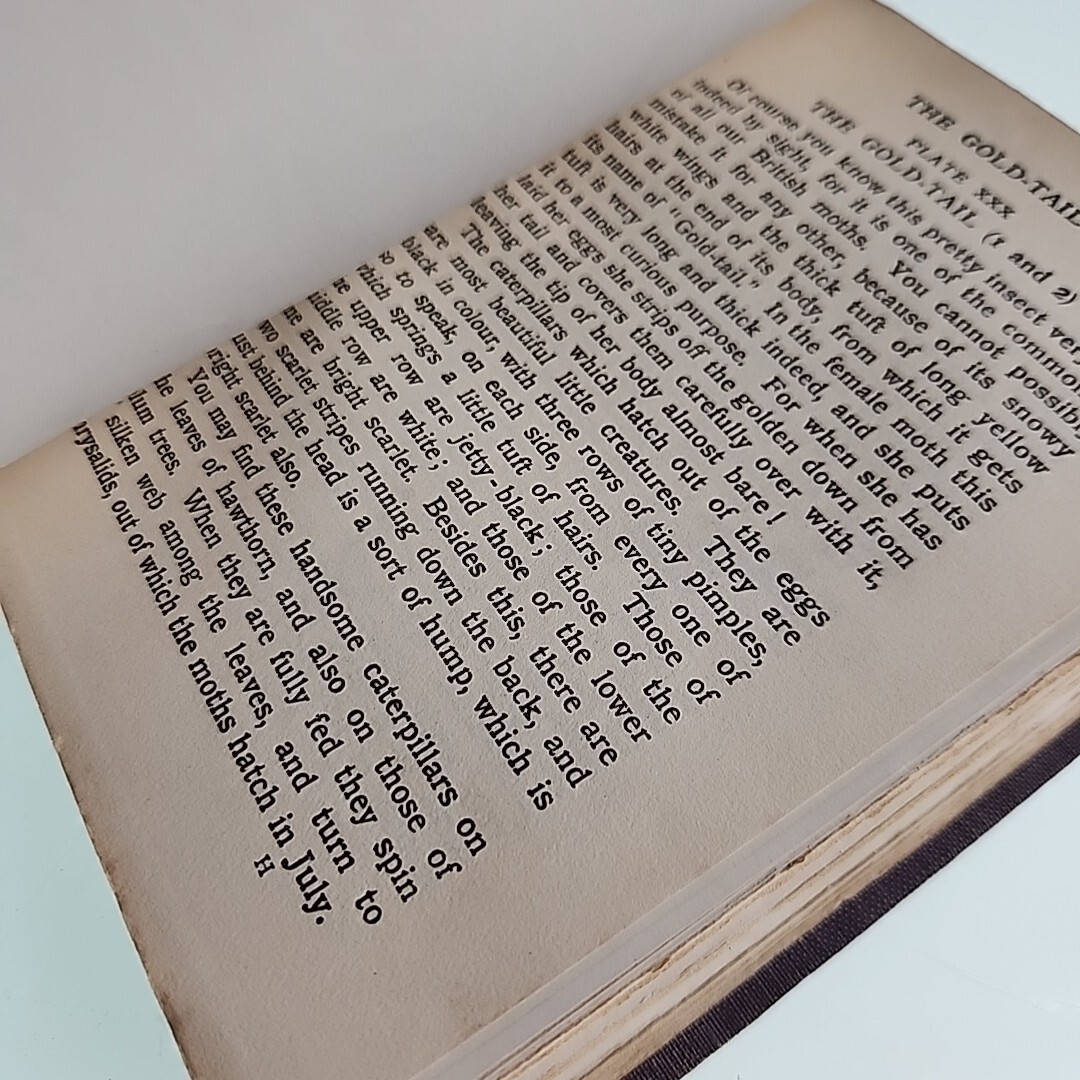 THE GOLD-TAIL
PLATE XXX
THE GOLD-TAIL (1 and 2)
Of course you know this pretty insect very
indeed by sight, for it is one of the common
of all our British moths. You cannot possibly
mistake it for any other, because of its snowy
white wings and the thick tuft of long yellow
hairs at the end of its body, from which it gets
its name of "Gold-tail." In the female moth this
tuft is very long and thick indeed, and she puts
it to a most curious purpose. For when she has
laid her eggs she strips off the golden down from
her tail and covers them carefully over with it,
leaving the tip of her body almost bare!
The caterpillars which hatch out of the eggs
are most beautiful little creatures. They are
black in colour, with three rows of tiny pimples,
so to speak, on each side, from every one of
which springs a little tuft of hairs. Those of
upper row are jetty-black; those of the
middle row are white; and those of the lower
are bright scarlet. Besides this, there are
two scarlet stripes running down the back, and
just behind the head is a sort of hump, which is
bright scarlet also.
You may find these handsome caterpillars on
the leaves of hawthorn, and also on those of
plum trees. When they are fully fed they spin
silken web among the leaves, and turn to
chrysalids, out of which the moths hatch in July.
H